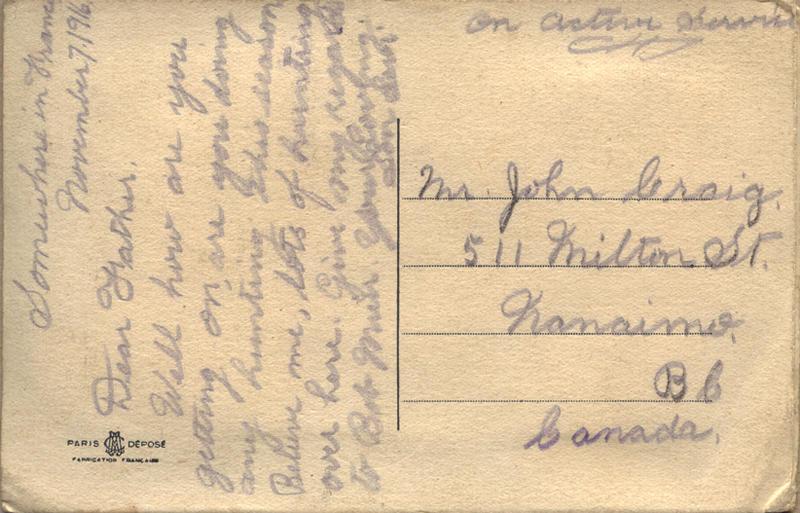 Somewhere in France
November 7, 1916
Dear Father.
Well how are you
getting on, are you doing
any hunting this season
Believe me, lots of hunting
over here. Give my regards
to Bob Muir Your Loving
Son
On Active Service
Mr. John Craig.
511 Milton St.
Nanaimo,
BC
Canada.
PARIS DÉPOSÉ
FABRICATION FRANÇAISE